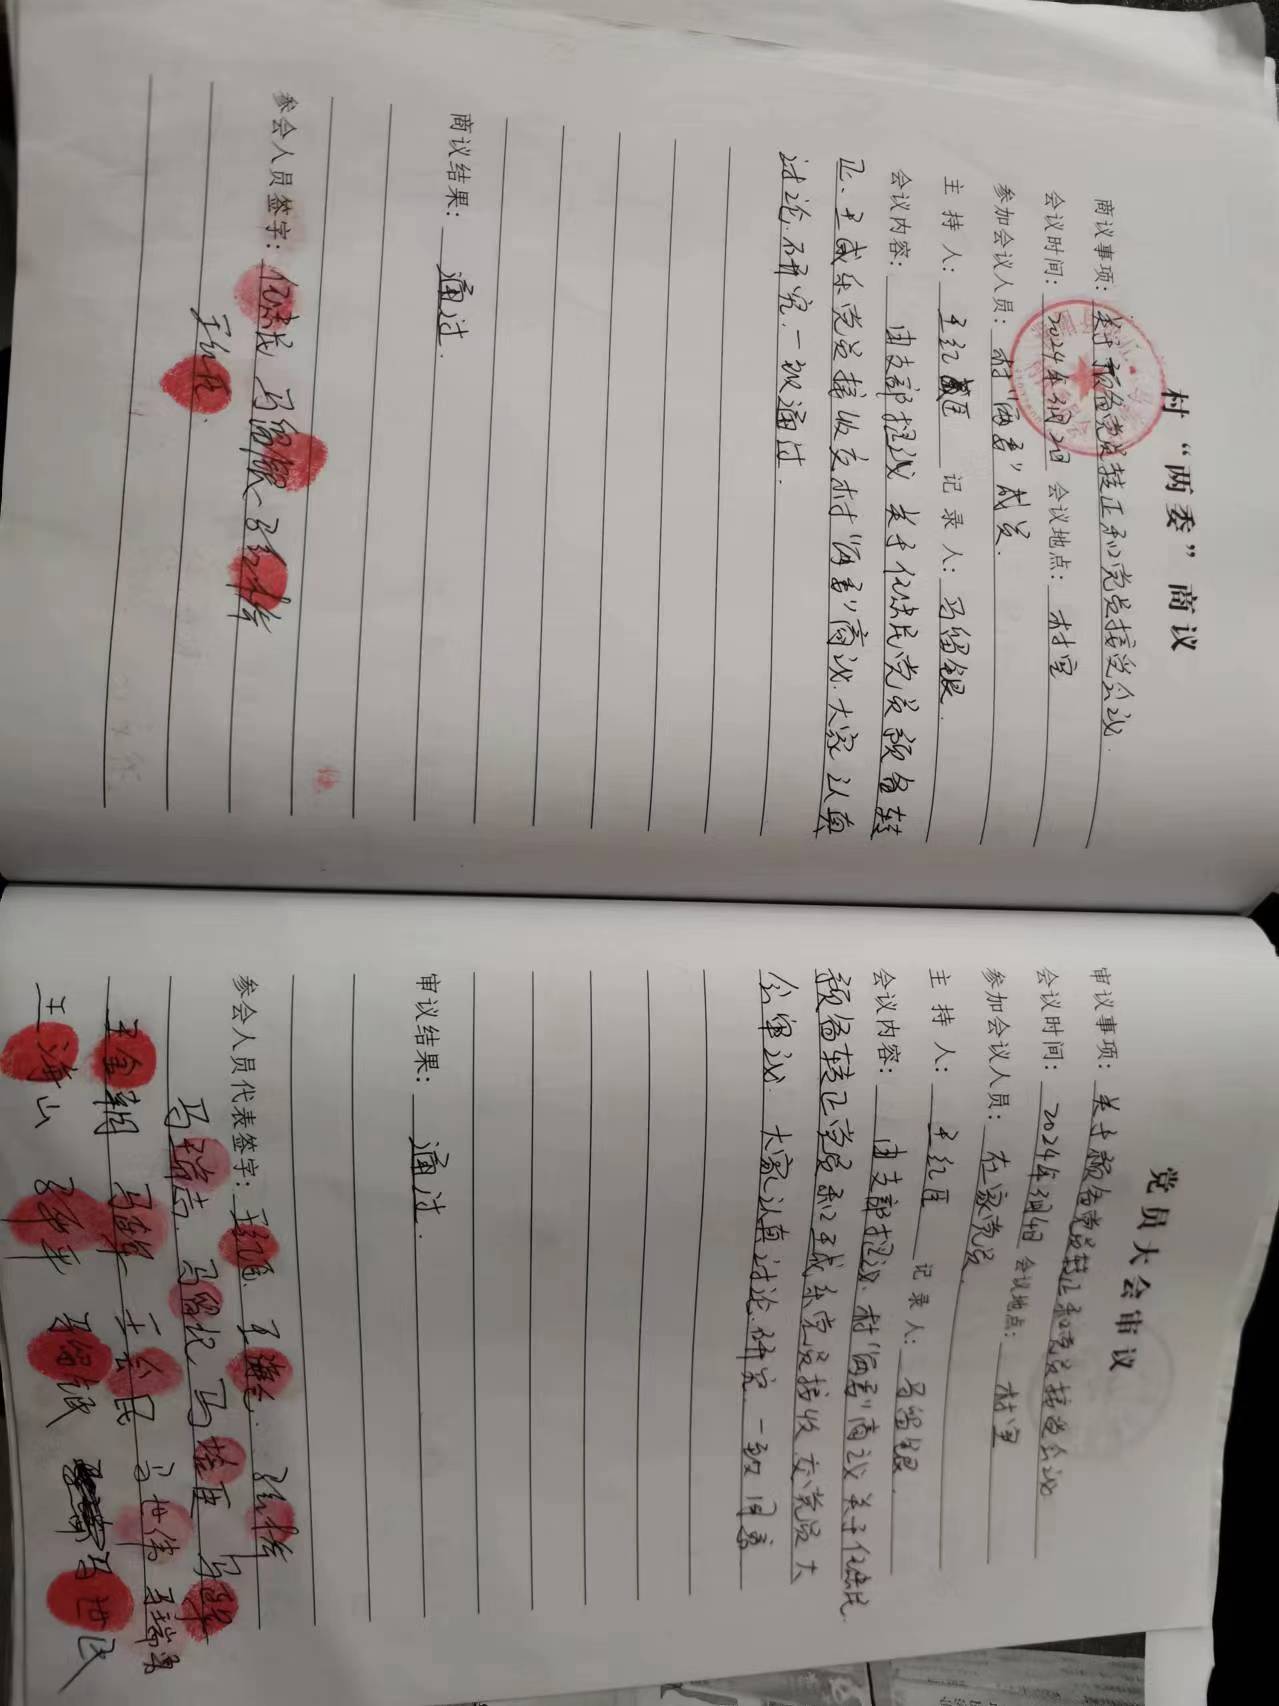 村“两委”商议
商议事项：关于预备党员转正和党员接受会议.
会议时间：2024年3月2日 会议地点：村室
参加会议人员：村“两委”成员.
主持人：王红臣 记录人：马留银.
会议内容：由支部提议 关于任法民党员预备转
正、王咸乐党员接收交村“两委”商议.大家认真
讨论.研究.一致通过.
商议结果：通过.
参会人员签字：任法民 马留银
党员大会审议
审议事项：关于预备党员转正和党员接受会议
会议时间：2024年3月4日 会议地点：村室
参加会议人员：在家党员.
主持人：王红臣 记录人：马留银.
会议内容：由支部提议.村“两委”商议关于任法民
预备转正党员和王咸乐党员接收交党员大
会审议.大家认真讨论.研究.一致同意
审议结果：通过.
参会人员代表签字：王红臣
王金钢 王会民 马世伟
王海山 马留银 马世民